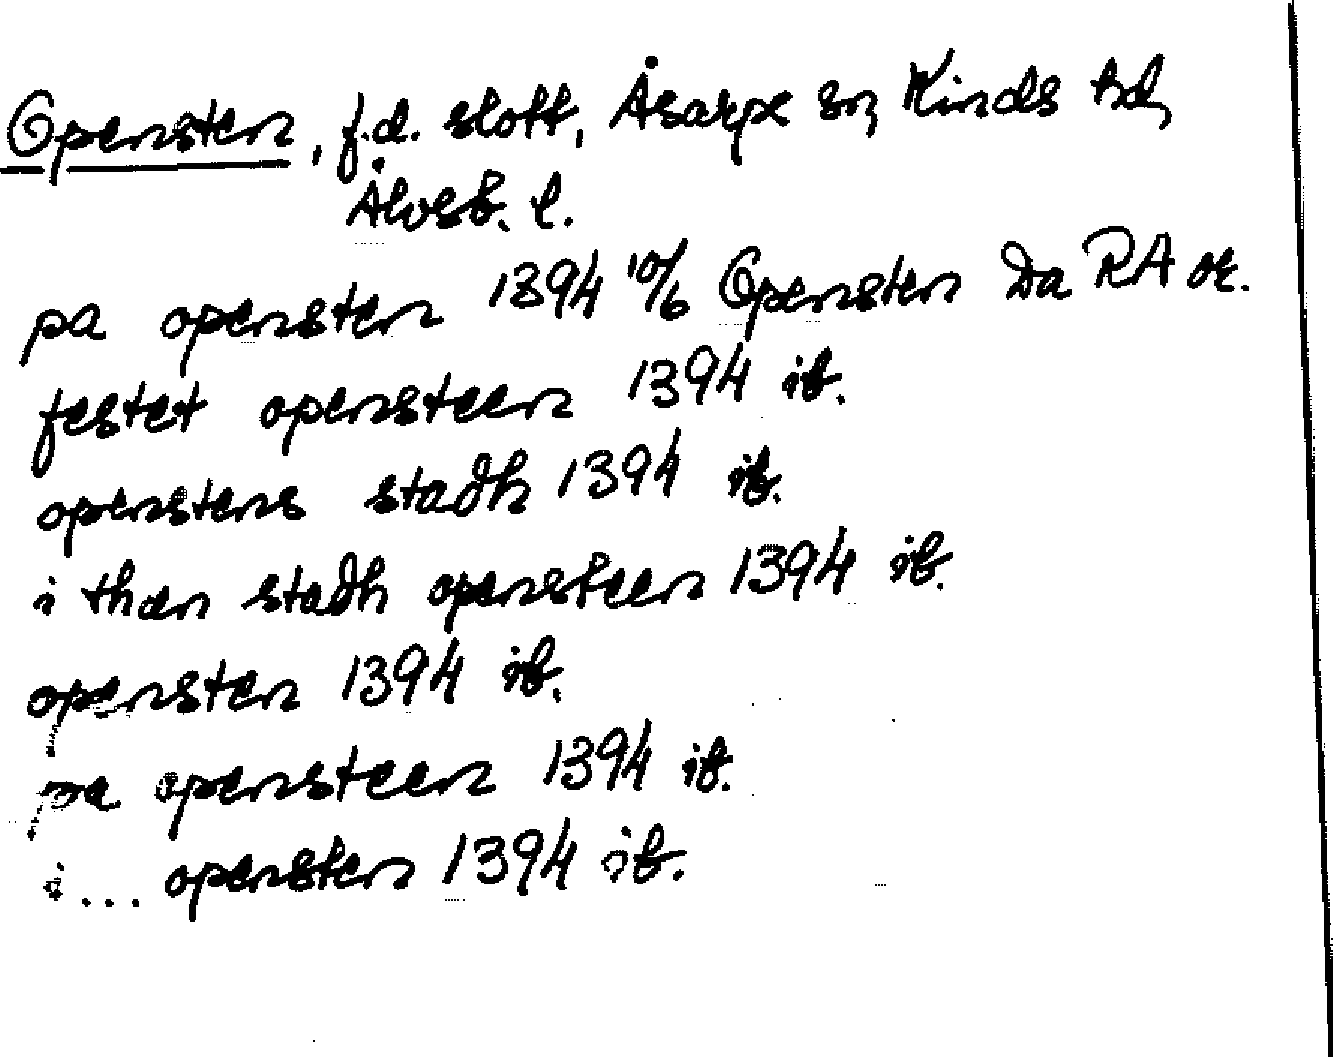 Opensten, f.d. slott, Åsarps sn, Kinds hd,
Älvsb. l.
pa opensten 1394 10/6 Opensten Da RA or.
festet opensteen 1394 ib.
openstens stadh 1394 ib.
i then stadh opensteen 1394 ib.
opensten 1394 ib.
pa opensteen 1394 ib.
i ... opensten 1394 ib.